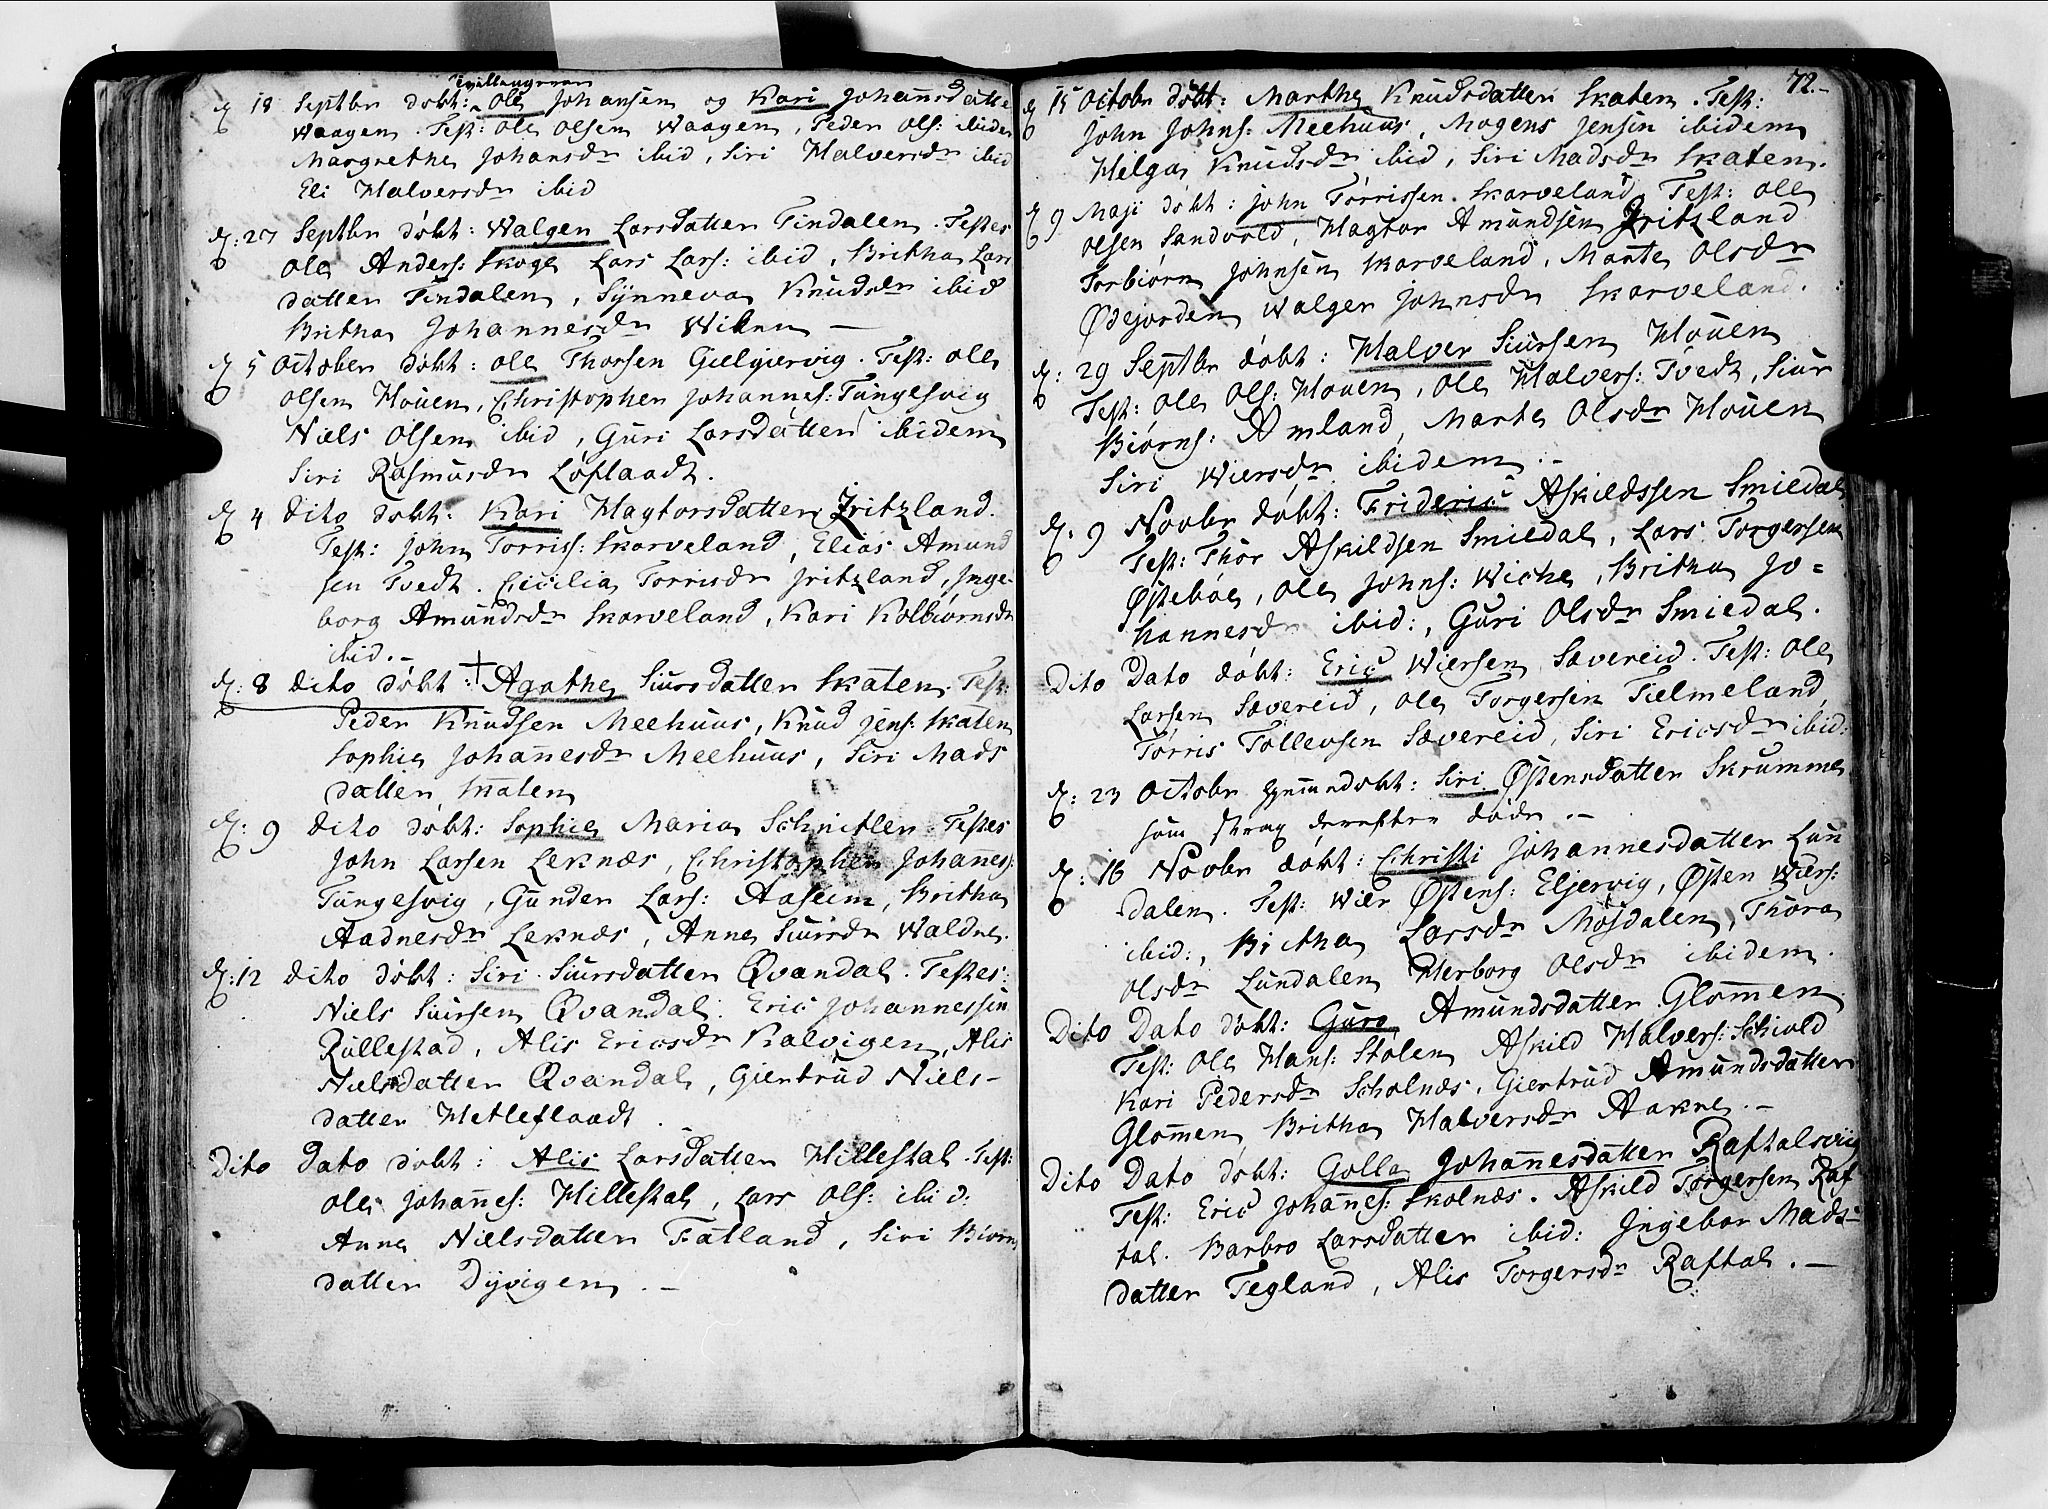 Tvillingerne
d. 18 Septbr døbt: Ole Johansen og Kari Johansdatter
Waagen. Test: Ole Olsen Waagen, Peder Ols: ibidem
Margrethe Johansdr ibid, Siri Halversdr ibid
Eli Halversdr ibid
d: 27 Septbr døbt: Walger Larsdatter Tindalen. Testes
Ole Anders: Skoge Lars Lars: ibid, Britha Lars
datter Tindalen, Synneva Knudsdr ibid
Britha Johannesdr Wiken —
d. 5 October døbt: Ole Thorsen Gielgiervig. Test: Ole
Olsen Houen, Christopher Johannes: Tungesvig
Niels Olsen ibid, Guri Larsdatter ibidem
Siri Rasmusdr Løflaadt.
d. 4 Dito døbt: Kari Hagtorsdatter Fritzland.
Test: John Torriss: Skarveland, Elias Amund
sen Tvedt. Cicilia Torrisdr Fritzland, Inge-
borg Amundsdr Skarveland, Kari Kolbiørnsdr
ibid. -
d: 8 Dito døbt: + Agathe Siursdatter Skaten. Test:
Peder Knudsen Meehuus, Knud Jens: Skaten
Sophie Johannesdr Meehuus, Siri Mads
datter Skaten
d: 9 Dito døbt: Sophie Maria Schnitler. Testes
John Larsen Leknæs, Christopher Johannes:
Tungesvig, Gunder Lars: Aaseim, Britha
Aadnesdr Leknæs, Anne Siursdr Waldre.
d: 12 Dito døbt: Siri Siursdatter Qvandal. Testes:
Niels Siursen Qvandal. Eric Johannessen
Rullestad, Alis Ericsdr Kalvigen, Alis
Nielsdatter Qvandal, Giertrud Niels-
datter Hetleflaadt.
Dito Dato døbt: Alis Larsdatter Hillestal. Test:
Ole Johannes: Hillestal, Lars Ols: ibid:
Anne Nielsdatter Fatland, Siri Biørn
datter Dyvigen. -
72. -
d. 15 Octobr døbt: Marthe Knudsdatter Skaten. Test:
John Johns: Meehuus, Mogens Jensen ibidem
Helga Knudsdr ibid, Siri Madsdr Skaten.
d. 9 Maji døbt: John Torrissen Skarveland, Test: Ole
Olsen Sandvold, Hagtor Amundsen Fritzland
Torbiørn Johnsen Skarveland, Marte Olsdr
Ødejorden Walger Johnsdr Skarveland.
d: 29 Septbr døbt: Halver Siursen Houen
Test: Ole Ols: Houen, Ole Halvers: Tvedt, Siur
Biørns: Amland, Marte Olsdr Houen
Siri Wiersdr ibidem. -
d. 9 Novbr døbt: Frideric Askildssen Smiedal
Test: Thor Askildsen Smiedal, Lars Torgersen
Østebøe, Ole Johns: Wiche, Britha Jo=
hannesdr ibid:, Guri Olsdr Smiedal.
Dito Dato døbt: Eric Wiersen Sævereid. Test: Ole
Larsen Sævereid, Ole Torgersen Tielmeland,
Torris Tollevsen Sævereid, Siri Ericsdr ibid:
d: 23 Octobr hjemmedøbt: Siri Østensdatter Skrumme
som strax derefter døde. -
d: 16 Novbr døbt: Christi Johannesdatter Lun
dalen. Test: Wier Østens: Eljervig, Østen Wiers:
ibid:, Britha Larsdr Mosdalen, Thora
Olsdr Lundalen Herborg Olsdr ibidem.
Dito Dato døbt: Guro Amundsdatter Glommen
Test: Ole Hans: Stølen Askild Halvers: Schiold
Kari Pedersdr Scholnæs, Giertrud Amundsdatter
Glommen Britha Halversdr Aakre. -
Dito Dato døbt: Golla Johannesdatter Raftalsviig
Test: Eric Johannes: Skolnæs. Askild Torgersen Raf
tal. Barbro Larsdatter ibid: Ingebor Mads-
datter Tegland, Alis Torgersdr Raftal. —